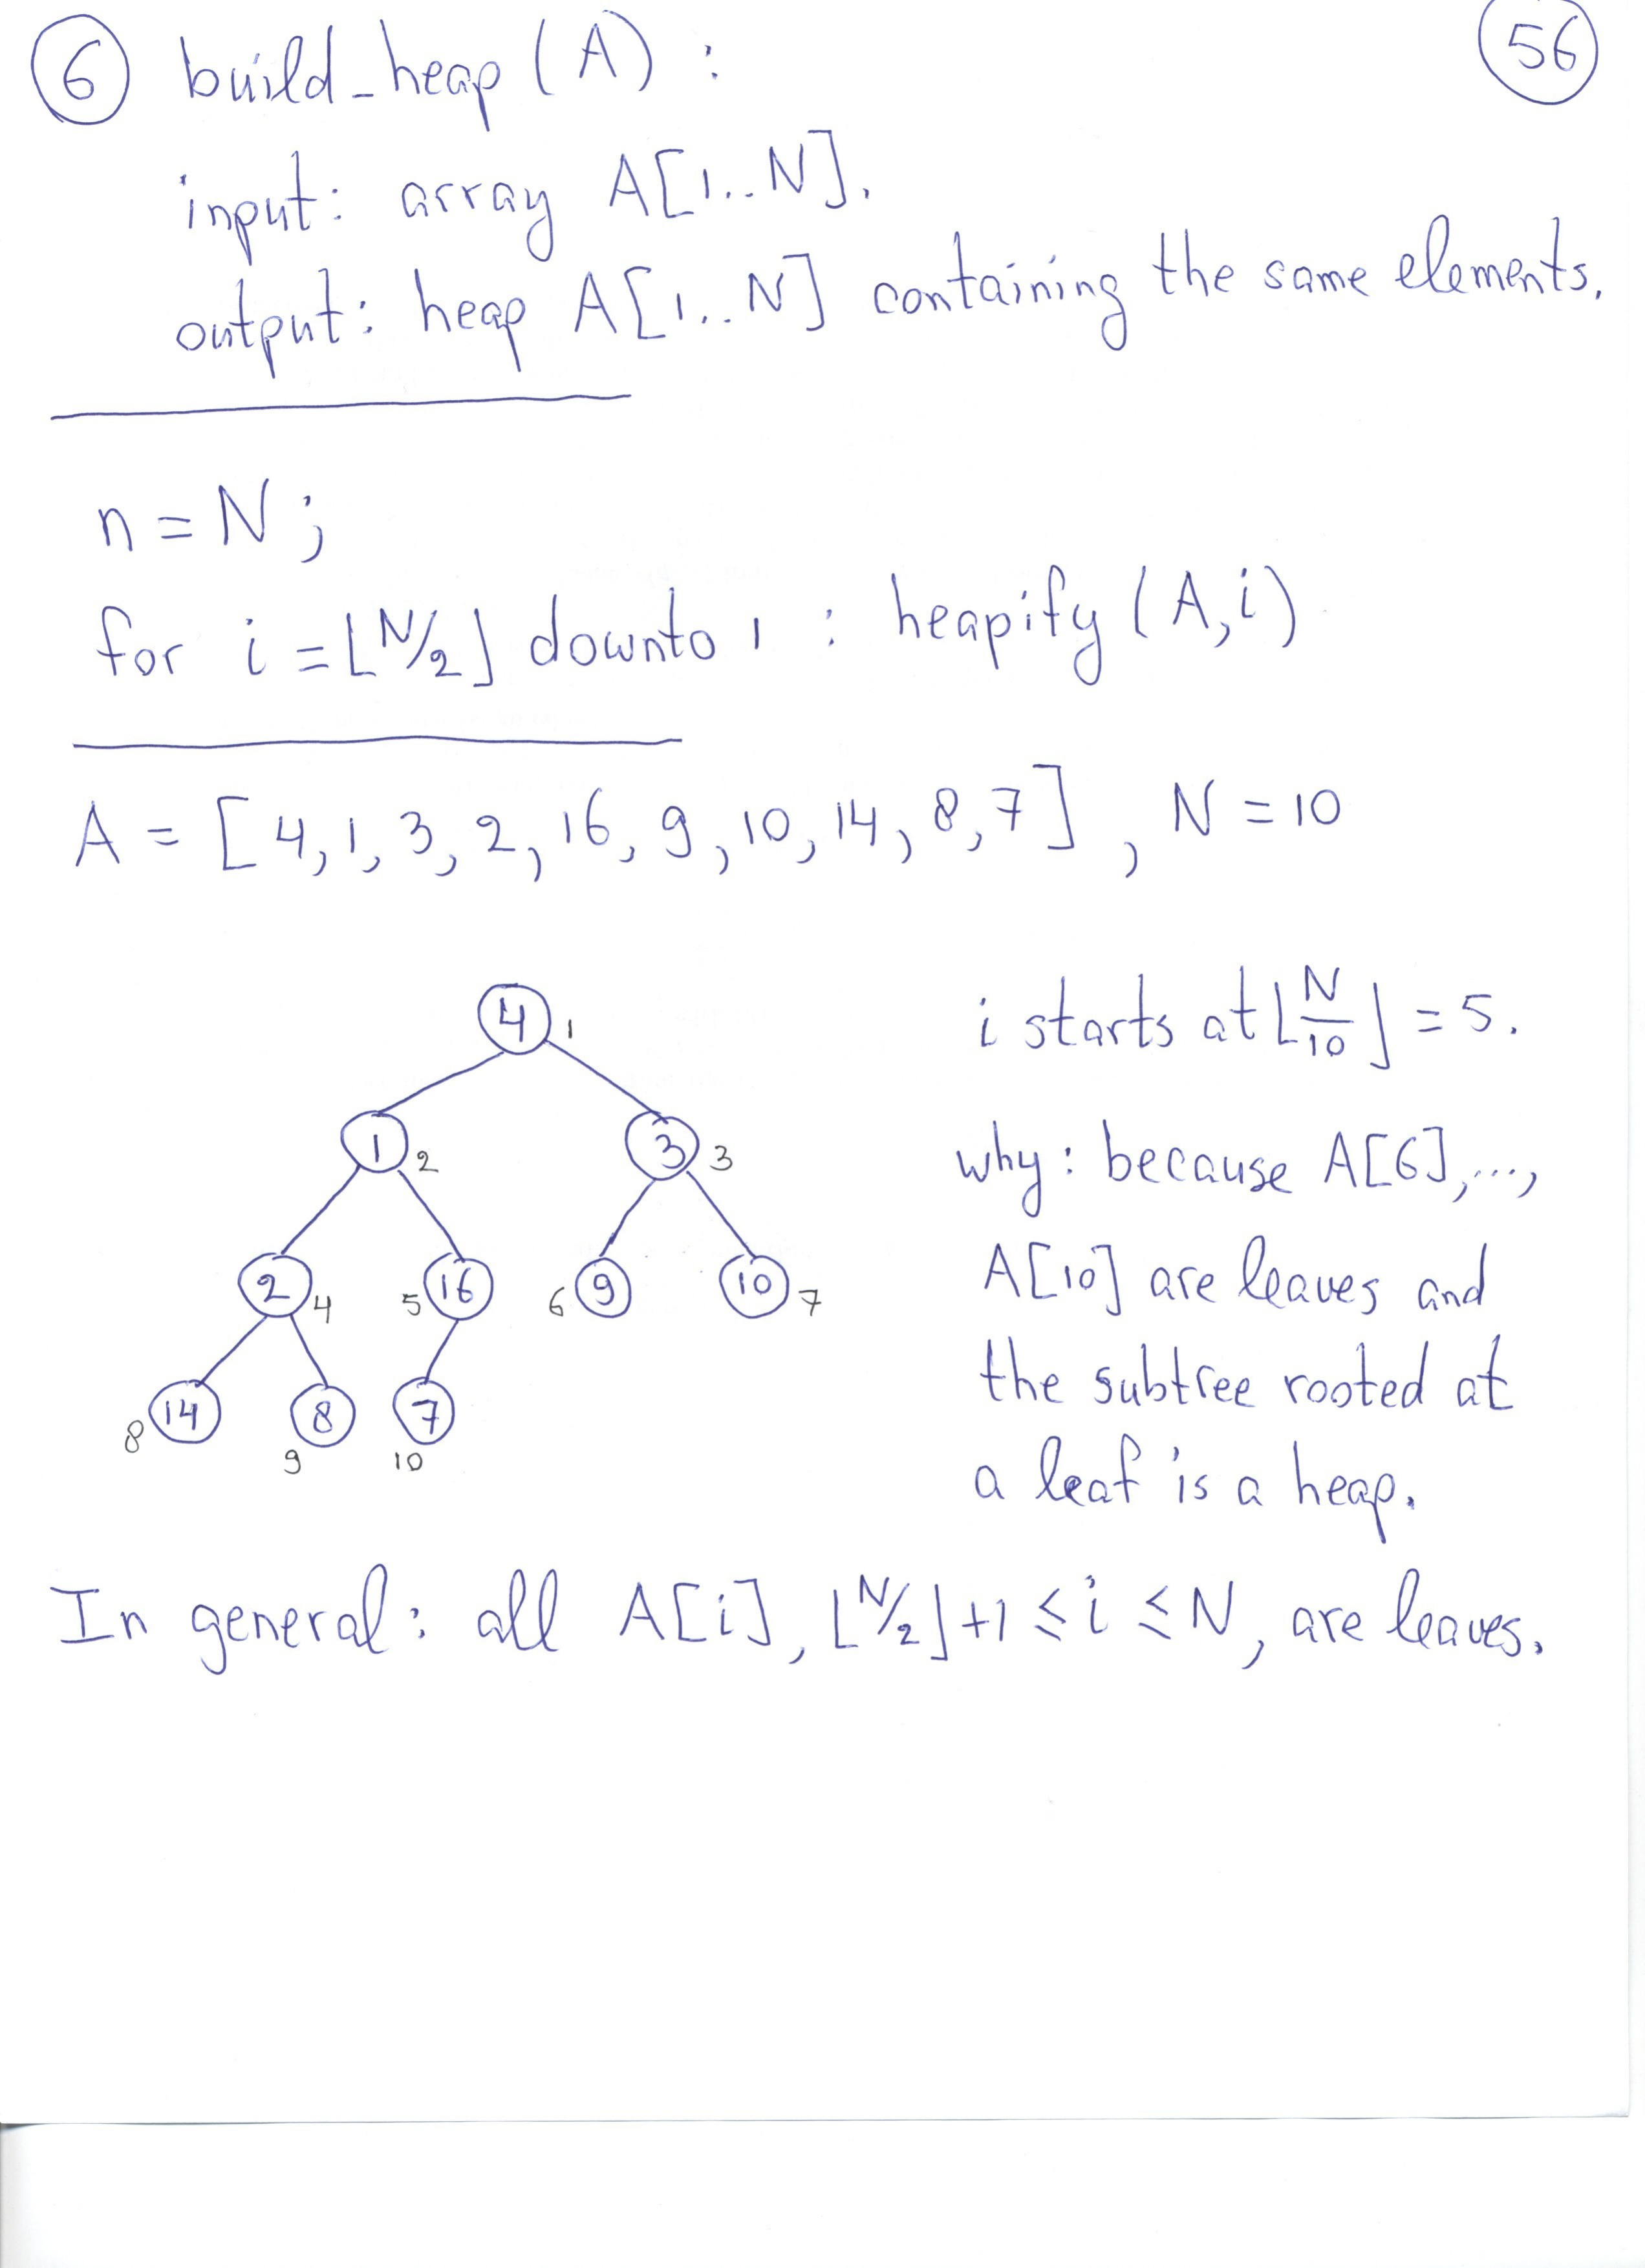 6 build_heap(A): 56
input: array A[1..N].
output: heap A[1..N] containing the same elements.
n = N;
for i = ⌊N/2⌋ downto 1 : heapify(A,i)
A = [4,1,3,2,16,9,10,14,8,7], N = 10
4 1
1 2 3 3
2 4 5 16 6 9 10 7
8 14 8 9 7 10
i starts at ⌊N/10⌋ = 5.
why: because A[6],...,
A[10] are leaves and
the subtree rooted at
a leaf is a heap.
In general: all A[i], ⌊N/2⌋+1 ≤ i ≤ N, are leaves.